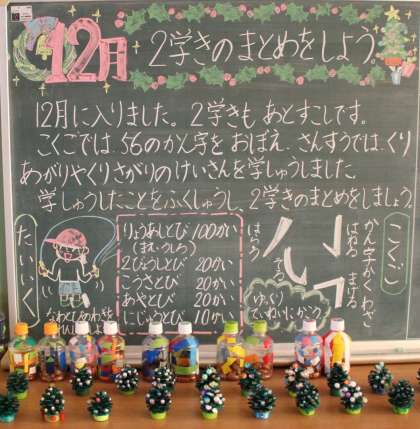 12月
2学きのまとめをしよう。
12月に入りました。2学きもあとすこしです。
こくごでは、56のかん字をおぼえ、さんすうでは、くり
あがりやくりさがりのけいさんを学しゅうしました。
学しゅうしたことをふくしゅうし、2学きのまとめをしましょう。
たいいく
なわとびのわざを
りょうあしとび 100かい
(まえ・うしろ)
2びょうしとび 20かい
こうさとび 20かい
あやとび 20かい
にじゅうとび 10かい
こくご
かん字がくわざ
はねる
まげる
そり
はらう
ゆっくり
ていねいにかこう。